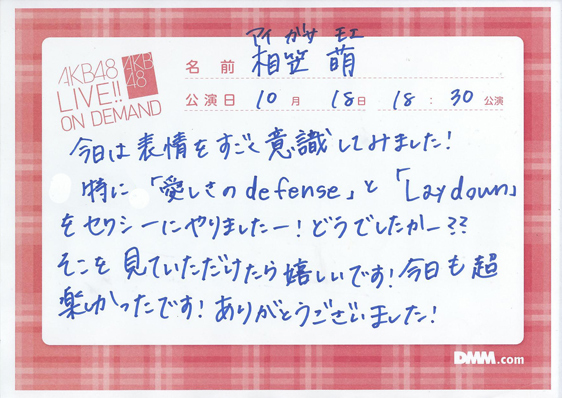 アイ がサ モエ
AKB48
LIVE!!
ON DEMAND
AKB
48
名前 相笠 萌
公演日 10月 18日 18:30公演
今日は表情をすごく意識してみました!
特に「愛しさのdefense」と「Lay down」
をセクシーにやりましたー!どうでしたかー??
そこを見ていただけたら嬉しいです!今日も超
楽しかったです!ありがとうございました!
DMM.com